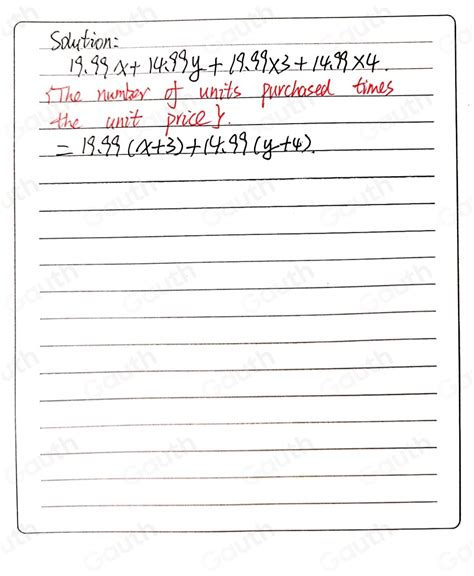 Solution:
19.99x + 14.99y + 19.99×3 + 14.99×4.
{The number of units purchased times
the unit price}.
= 19.99(x+3)+14.99(y+4).